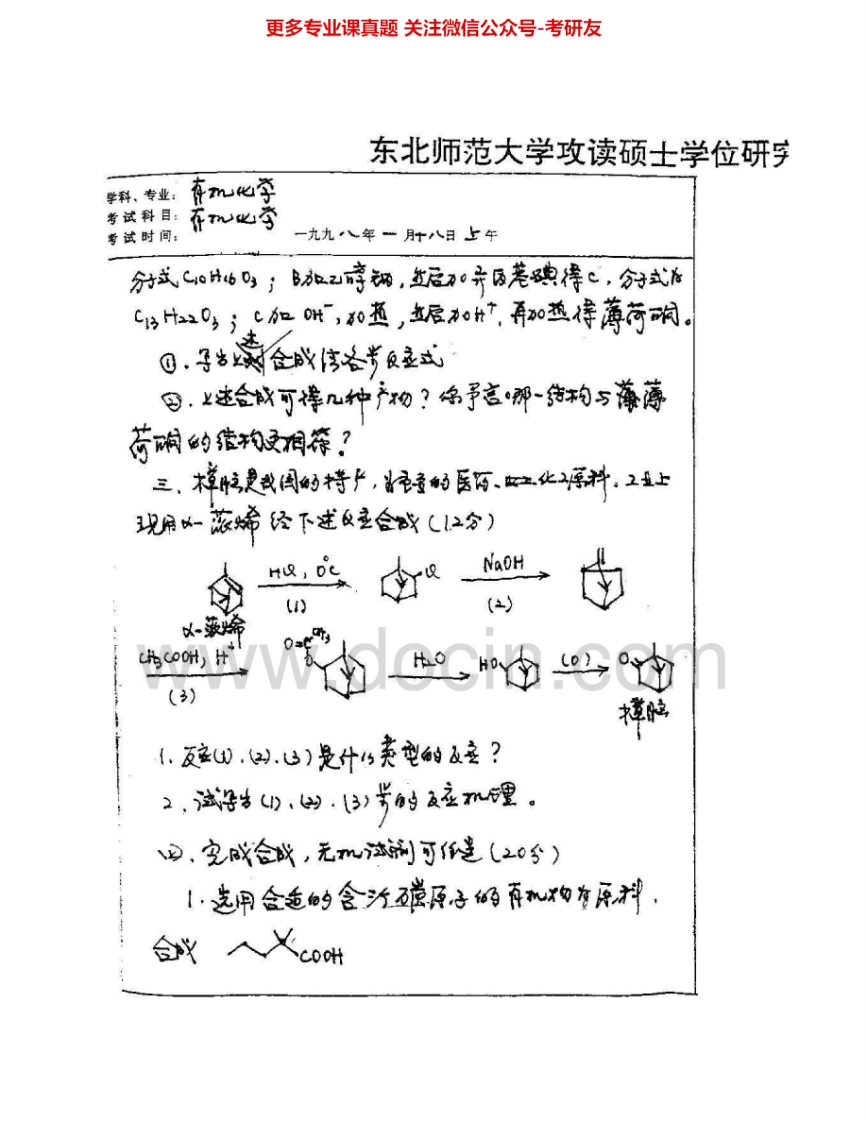 更多专业课真题 关注微信公众号-考研友
东北师范大学攻读硕士学位研究
学科、专业: 有机化学
考试科目: 有机化学
考试时间: 一九九八年一月十八日上午
分子式C10H16O3; B加乙醇钠,然后加异丙基碘得C,分子式为
C13H22O3; C加OH⁻,加热,然后加H⁺,再加热得薄荷酮。
①.写出上述合成法各步反应式
②.上述合成可得几种产物?你予言哪一结构与薄
荷酮的结构更相符?
三、樟脑是我国的特产,当重要的医药、化工原料。工业上
现用α-蒎烯经下述反应合成(12分)
HCl, 0°C
(1)
Cl
NaOH
(2)
α-蒎烯
CH3COOH, H⁺
(3)
O=C CH3
O
H2O
HO
(O)
O
樟脑
www.docin.com
1.反应(1).(2).(3)是什么类型的反应?
2.试写出(1).(2).(3)步的反应机理。
四、完成合成,无机试剂可任选(20分)
1.选用合适的含 碳原子的有机物为原料,
合成 COOH